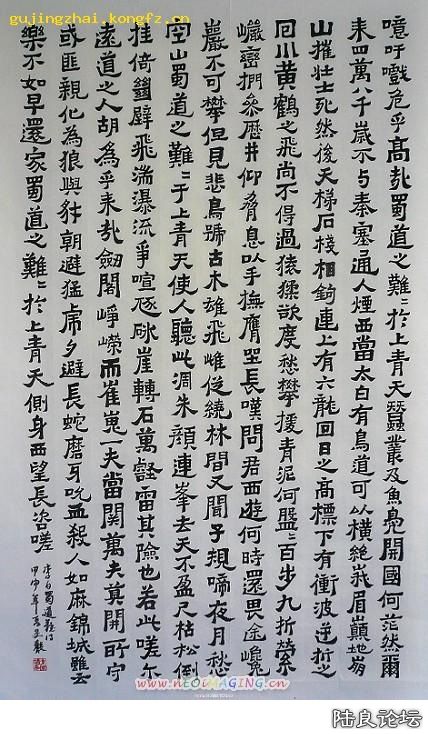 gujingzhai.kongfz.cn
噫吁戲危乎高哉蜀道之難〻於上青天蠶叢及魚鳧開國何茫然爾
來四萬八千歲不与秦塞通人煙西當太白有鳥道可以橫絕峨眉巔地崩
山摧壯士死然後天梯石棧相鉤連上有六龍回日之高標下有衝波逆折之
回川黃鶴之飛尚不得過猿猱欲度愁攀援青泥何盤〻百步九折縈
巖巒捫參歷井仰脅息以手撫膺坐長嘆問君西遊何時還畏途巉
巖不可攀但見悲鳥號古木雄飛雌從繞林間又聞子規啼夜月愁
空山蜀道之難〻于上青天使人聽此凋朱顏連峯去天不盈尺枯松倒
挂倚絕壁飛湍瀑流爭喧豗砯崖轉石萬壑雷其險也若此嗟尔
遠道之人胡為乎來哉劍閣崢嶸而崔嵬一夫當關萬夫莫開所守
或匪親化為狼與豺朝避猛虎夕避長蛇磨牙吮血殺人如麻錦城雖云
樂不如早還家蜀道之難〻於上青天側身西望長咨嗟
李白蜀道難詩
甲申年
www.NEOIMAGING.cn
陆良论坛